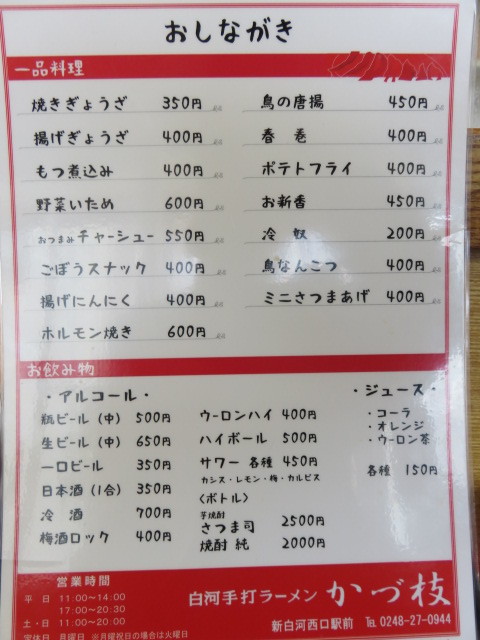 おしながき
一品料理
焼きぎょうざ 350円
揚げぎょうざ 400円
もつ煮込み 400円
野菜いため 600円
おつまみチャーシュー 550円
ごぼうスナック 400円
揚げにんにく 400円
ホルモン焼き 600円
鳥の唐揚 450円
春巻 400円
ポテトフライ 400円
お新香 450円
冷奴 200円
鳥なんこつ 400円
ミニさつまあげ 400円
お飲み物
・アルコール・
瓶ビール(中) 500円
生ビール(中) 650円
一口ビール 350円
日本酒(1合) 350円
冷酒 700円
梅酒ロック 400円
ウーロンハイ 400円
ハイボール 500円
サワー 各種 450円
カシス・レモン・梅・カルピス
〈ボトル〉
芋焼酎
さつま司 2500円
焼酎 純 2000円
・ジュース・
・コーラ
・オレンジ
・ウーロン茶
各種 150円
営業時間
平日 11:00~14:00
17:00~20:30
土・日 11:00~20:00
定休日 月曜日 ※月曜祝日の場合は火曜日
白河手打ラーメン かづ枝
新白河西口駅前 TEL 0248-27-0944